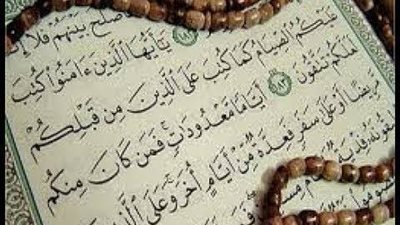 أَصْلَحَ بَيْنَهُمْ فَلَا
۝١٨٢ يَٰٓأَيُّهَا ٱلَّذِينَ ءَامَنُوا۟ كُتِبَ
عَلَيْكُمُ ٱلصِّيَامُ كَمَا كُتِبَ عَلَى ٱلَّذِينَ مِن قَبْلِكُمْ
لَعَلَّكُمْ تَتَّقُونَ ۝١٨٣ أَيَّامًا مَّعْدُودَٰتٍ فَمَن كَانَ مِنكُم
مَّرِيضًا أَوْ عَلَىٰ سَفَرٍ فَعِدَّةٌ مِّنْ أَيَّامٍ أُخَرَ وَعَلَى ٱلَّذِينَ
فِدْيَةٌ